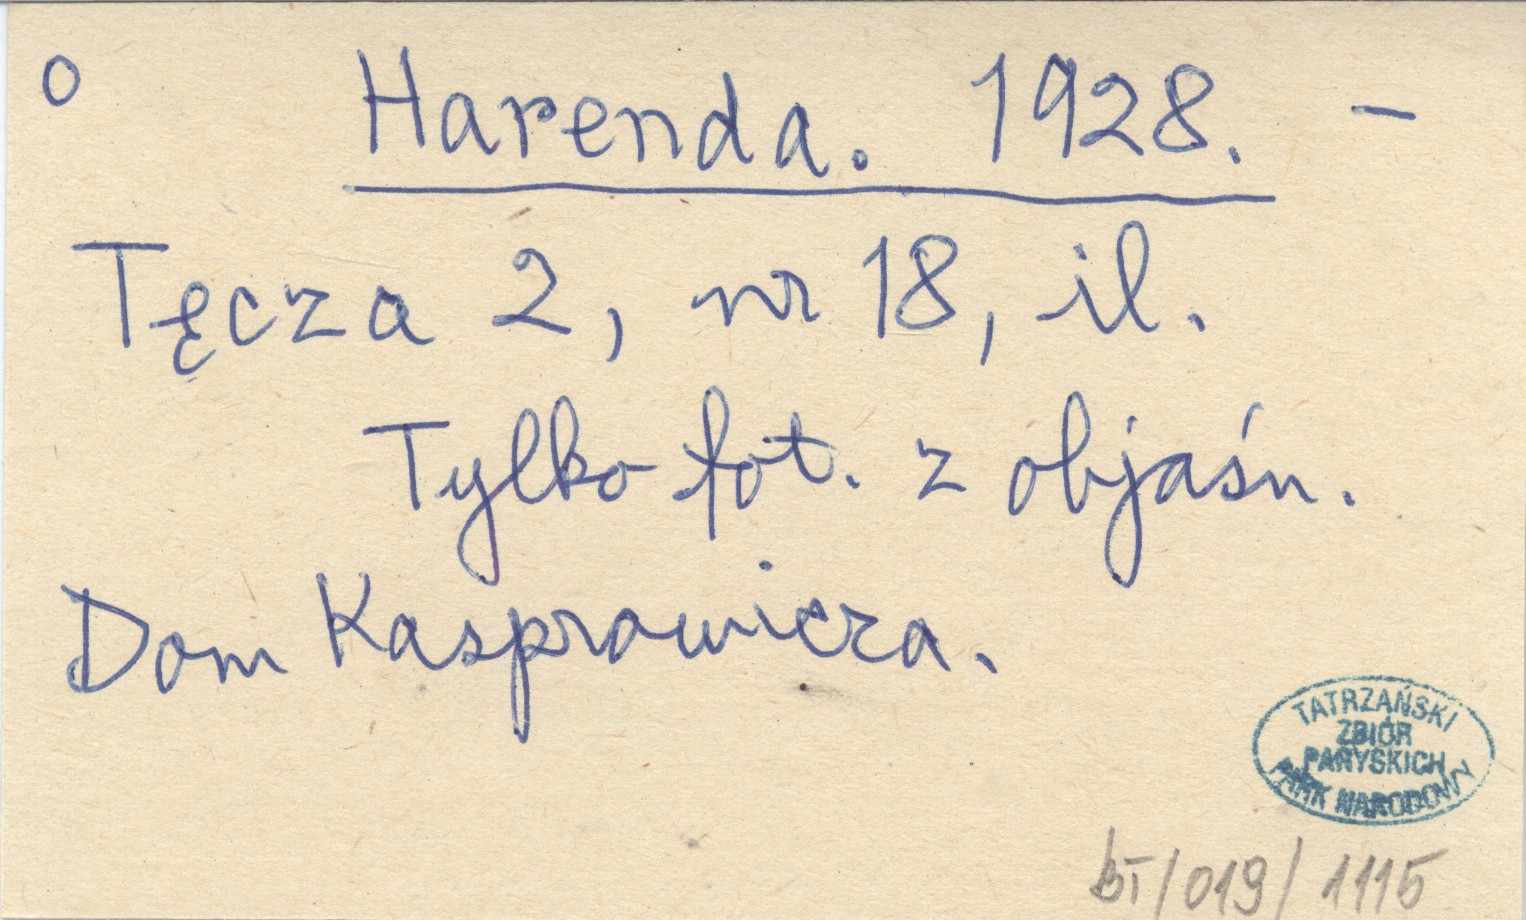 o Harenda. 1928. –
Tęcza 2, nr 18, il.
Tylko fot. z objaśn.
Dom Kasprowicza.
TATRZAŃSKI
ZBIÓR
PARYSKICH
PARK NARODOWY
bT/019/1115